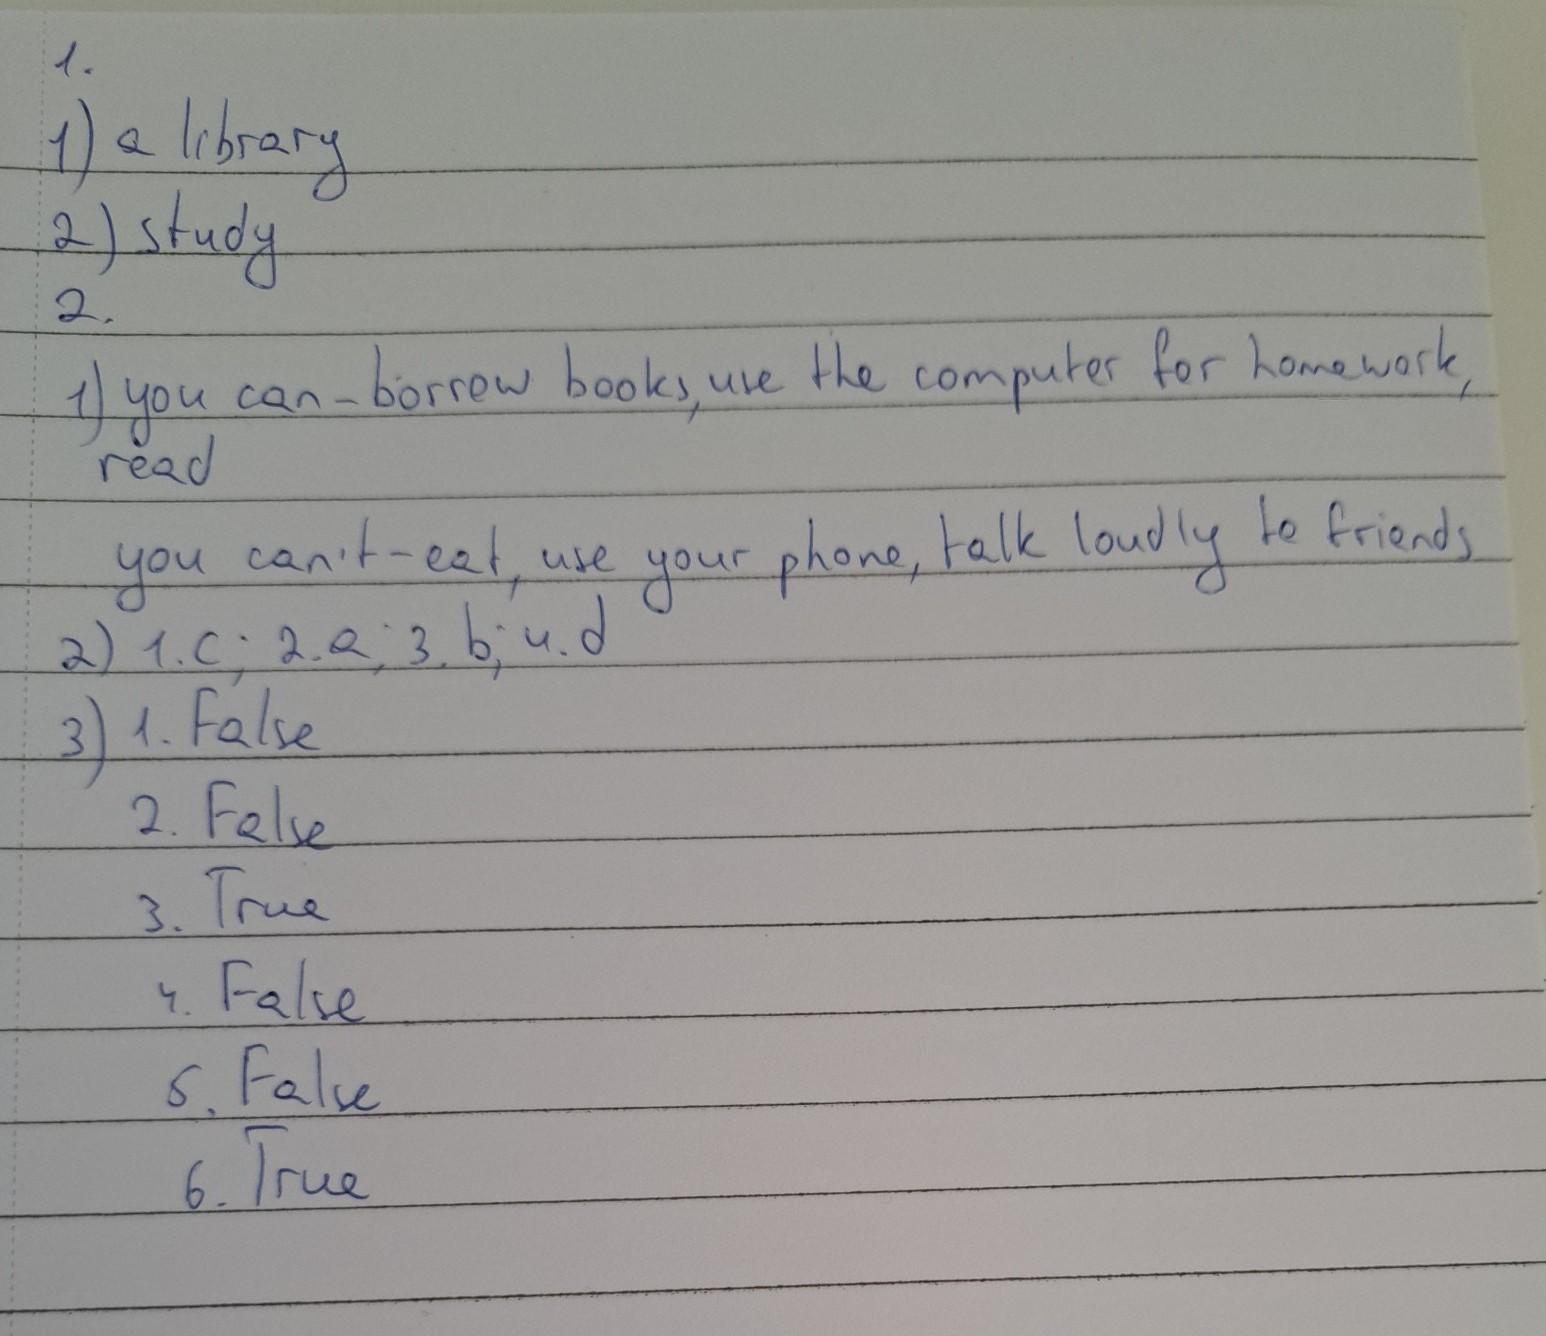 1.
1) a library
2) study
2.
1) you can - borrow books, use the computer for homework,
read
you can't - eat, use your phone, talk loudly to friends
2) 1. c; 2. a; 3. b; 4. d
3) 1. False
2. False
3. True
4. False
5. False
6. True